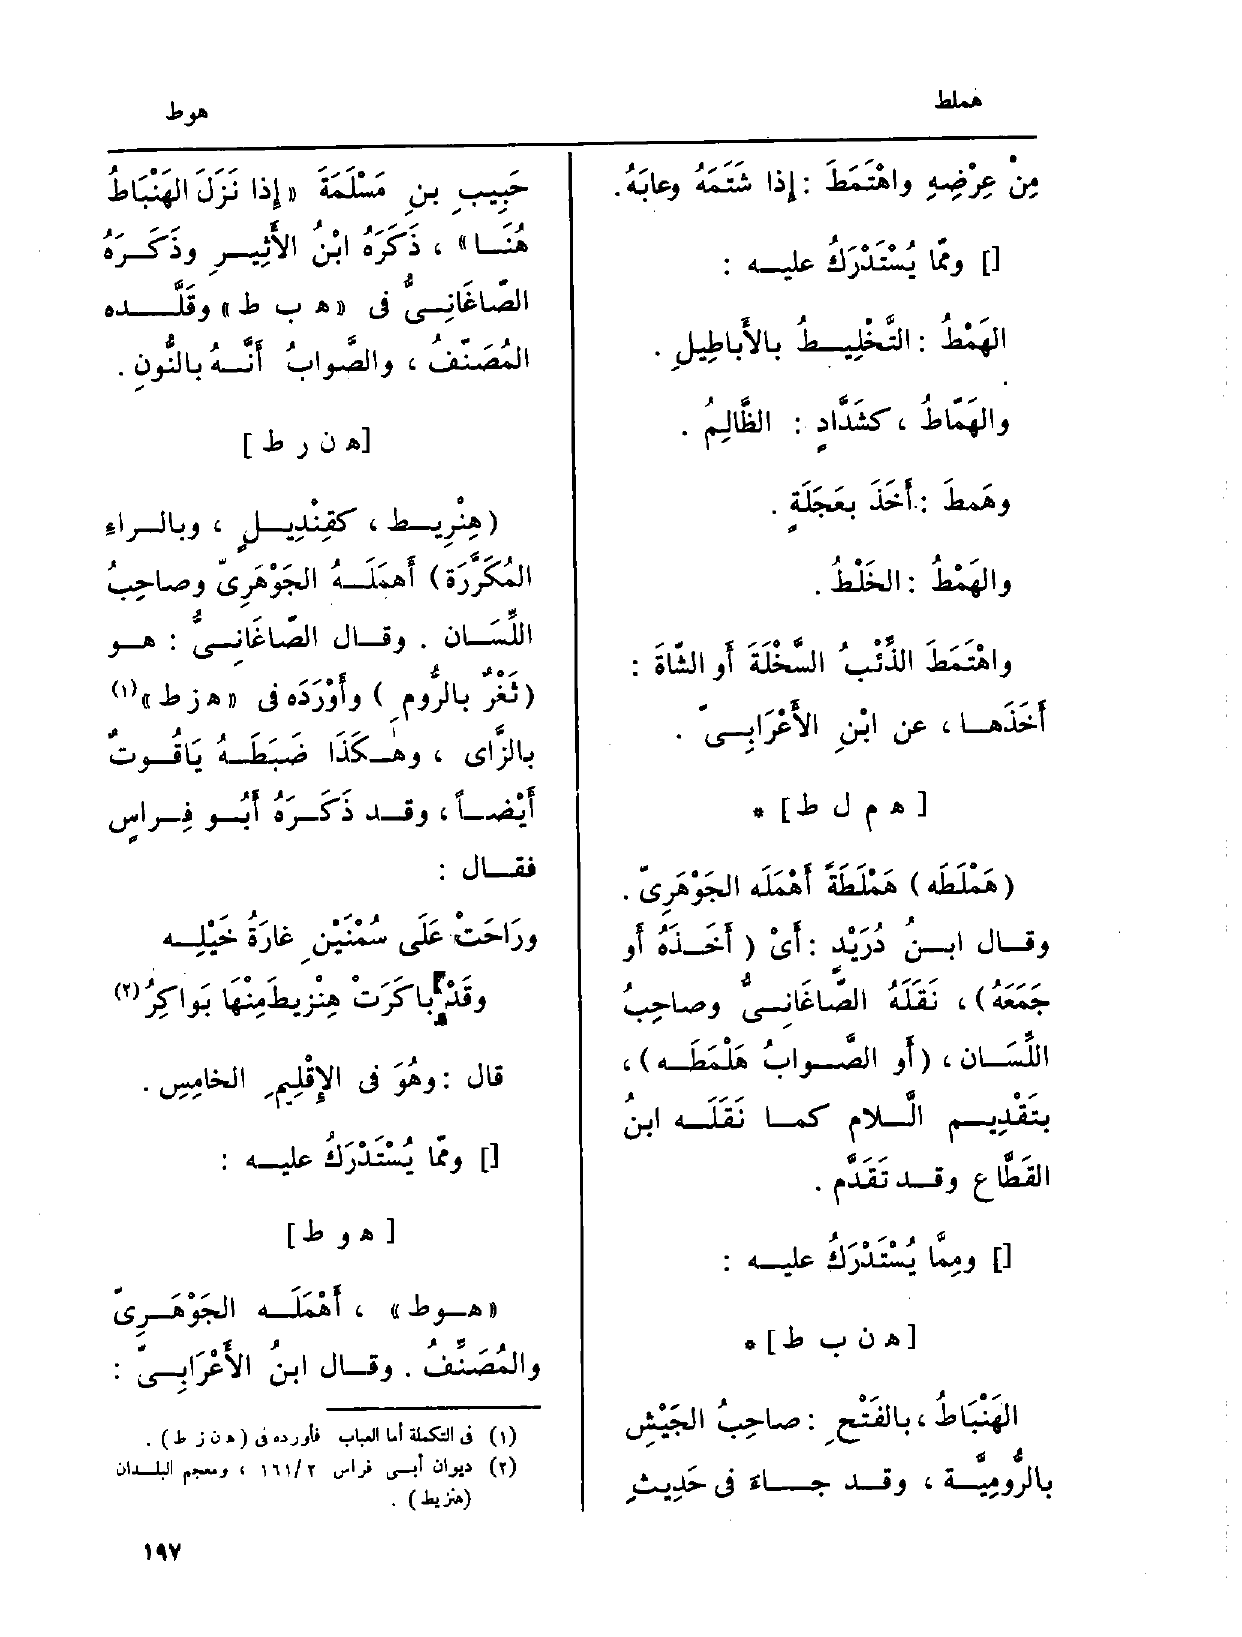 هملط
هوط
مِنْ عِرْضِهِ واهْتَمَطَ : إِذا شَتَمَهُ وعابَهُ .
[] وممّا يُسْتَدْرَكُ عليــه :
الهَمْطُ : التَّخْلِيــطُ بالأَباطِيلِ .
والهَمّاطُ ، كشَدَّادٍ : الظَّالِمُ .
وهَمطَ : أَخَذَ بعَجَلَةٍ .
والهَمْطُ : الخَلْطُ .
واهْتَمَطَ الذِّئْبُ السَّخْلَةَ أَو الشّاةَ :
أَخَذَهــا ، عن ابْنِ الأَعْرَابِــيّ .
[ ه م ل ط ] *
( هَمْلَطَه ) هَمْلَطَةً أَهْمَلَه الجَوْهَرِيّ .
وقــال ابــنُ دُرَيْد : أَىْ ( أَخَــذَهُ أَو
جَمَعَهُ ) ، نَقَلَهُ الصّاغَانِــىُّ وصاحِبُ
اللِّسَــان ، ( أَو الصَّــوابُ هَلْمَطَــه ) ،
بتَقْدِيــم الَّــلام كمــا نَقَلَــه ابنُ
القَطَّاع وقــد تَقَدَّم .
[] ومِمَّا يُسْتَدْرَكُ عليــه :
[ ه ن ب ط ] *
الهَنْبَاطُ ، بالفَتْحِ : صاحِبُ الجَيْشِ
بالرُّومِيَّــة ، وقــد جــاءَ فى حَدِيثِ
حَبِيبِ بنِ مَسْلَمَةَ « إِذا نَزَلَ الهَنْبَاطُ
هُنَــا » ، ذَكَرَهُ ابْنُ الأَثِيــرِ وذَكَــرَهُ
الصّاغَانِــىُّ فى « ه ب ط » وقَلَّــده
المُصَنّفُ ، والصَّوابُ أَنَّــهُ بالنُّونِ .
[ ه ن ر ط ]
( هِنْرِيــط ، كقِنْدِيــلٍ ، وبالــراءِ
المُكَرَّرَة ) أَهمَلَــهُ الجَوْهَرِىّ وصاحِبُ
اللِّسَــان . وقــال الصّاغَانِــىُّ : هــو
( ثَغْرٌ بالرُّومِ ) وأَوْرَدَه فى « ه ز ط »(١)
بالزَّاى ، وهٰــكَذَا ضَبَطَــهُ يَاقُــوتٌ
أَيْضــاً ، وقــد ذَكَــرَهُ أَبُــو فِــراسٍ
فقــال :
ورَاحَتْ عَلَى سُمْنَيْنِ غارَةُ خَيْلِــه
وقَدْ باكَرَتْ هِنْزِيطَ مِنْهَا بَواكِرُ(٢)
قال : وهُوَ فى الإِقْلِيمِ الخامِسِ .
[] وممّا يُسْتَدْرَكُ عليــه :
[ ه و ط ]
« هــوط » ، أَهْمَلَــه الجَوْهَــرِىّ
والمُصَنِّفُ . وقــال ابنُ الأَعْرَابِــىّ :
(١) فى التكملة أما العباب فأورده فى ( ه ن ز ط ) .
(٢) ديوان أبــى فراس ١٦١/٢ ، ومعجم البلــدان
(هنزيط) .
١٩٧